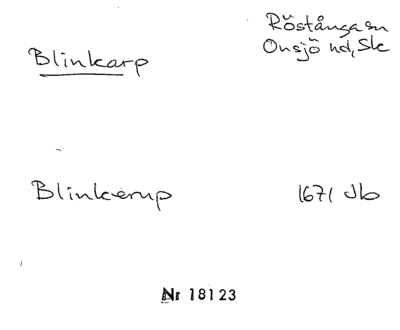 Röstånga sn
Onsjö hd, Sk
Blinkarp
Blinkerup
1671 Jb
Nr 18123